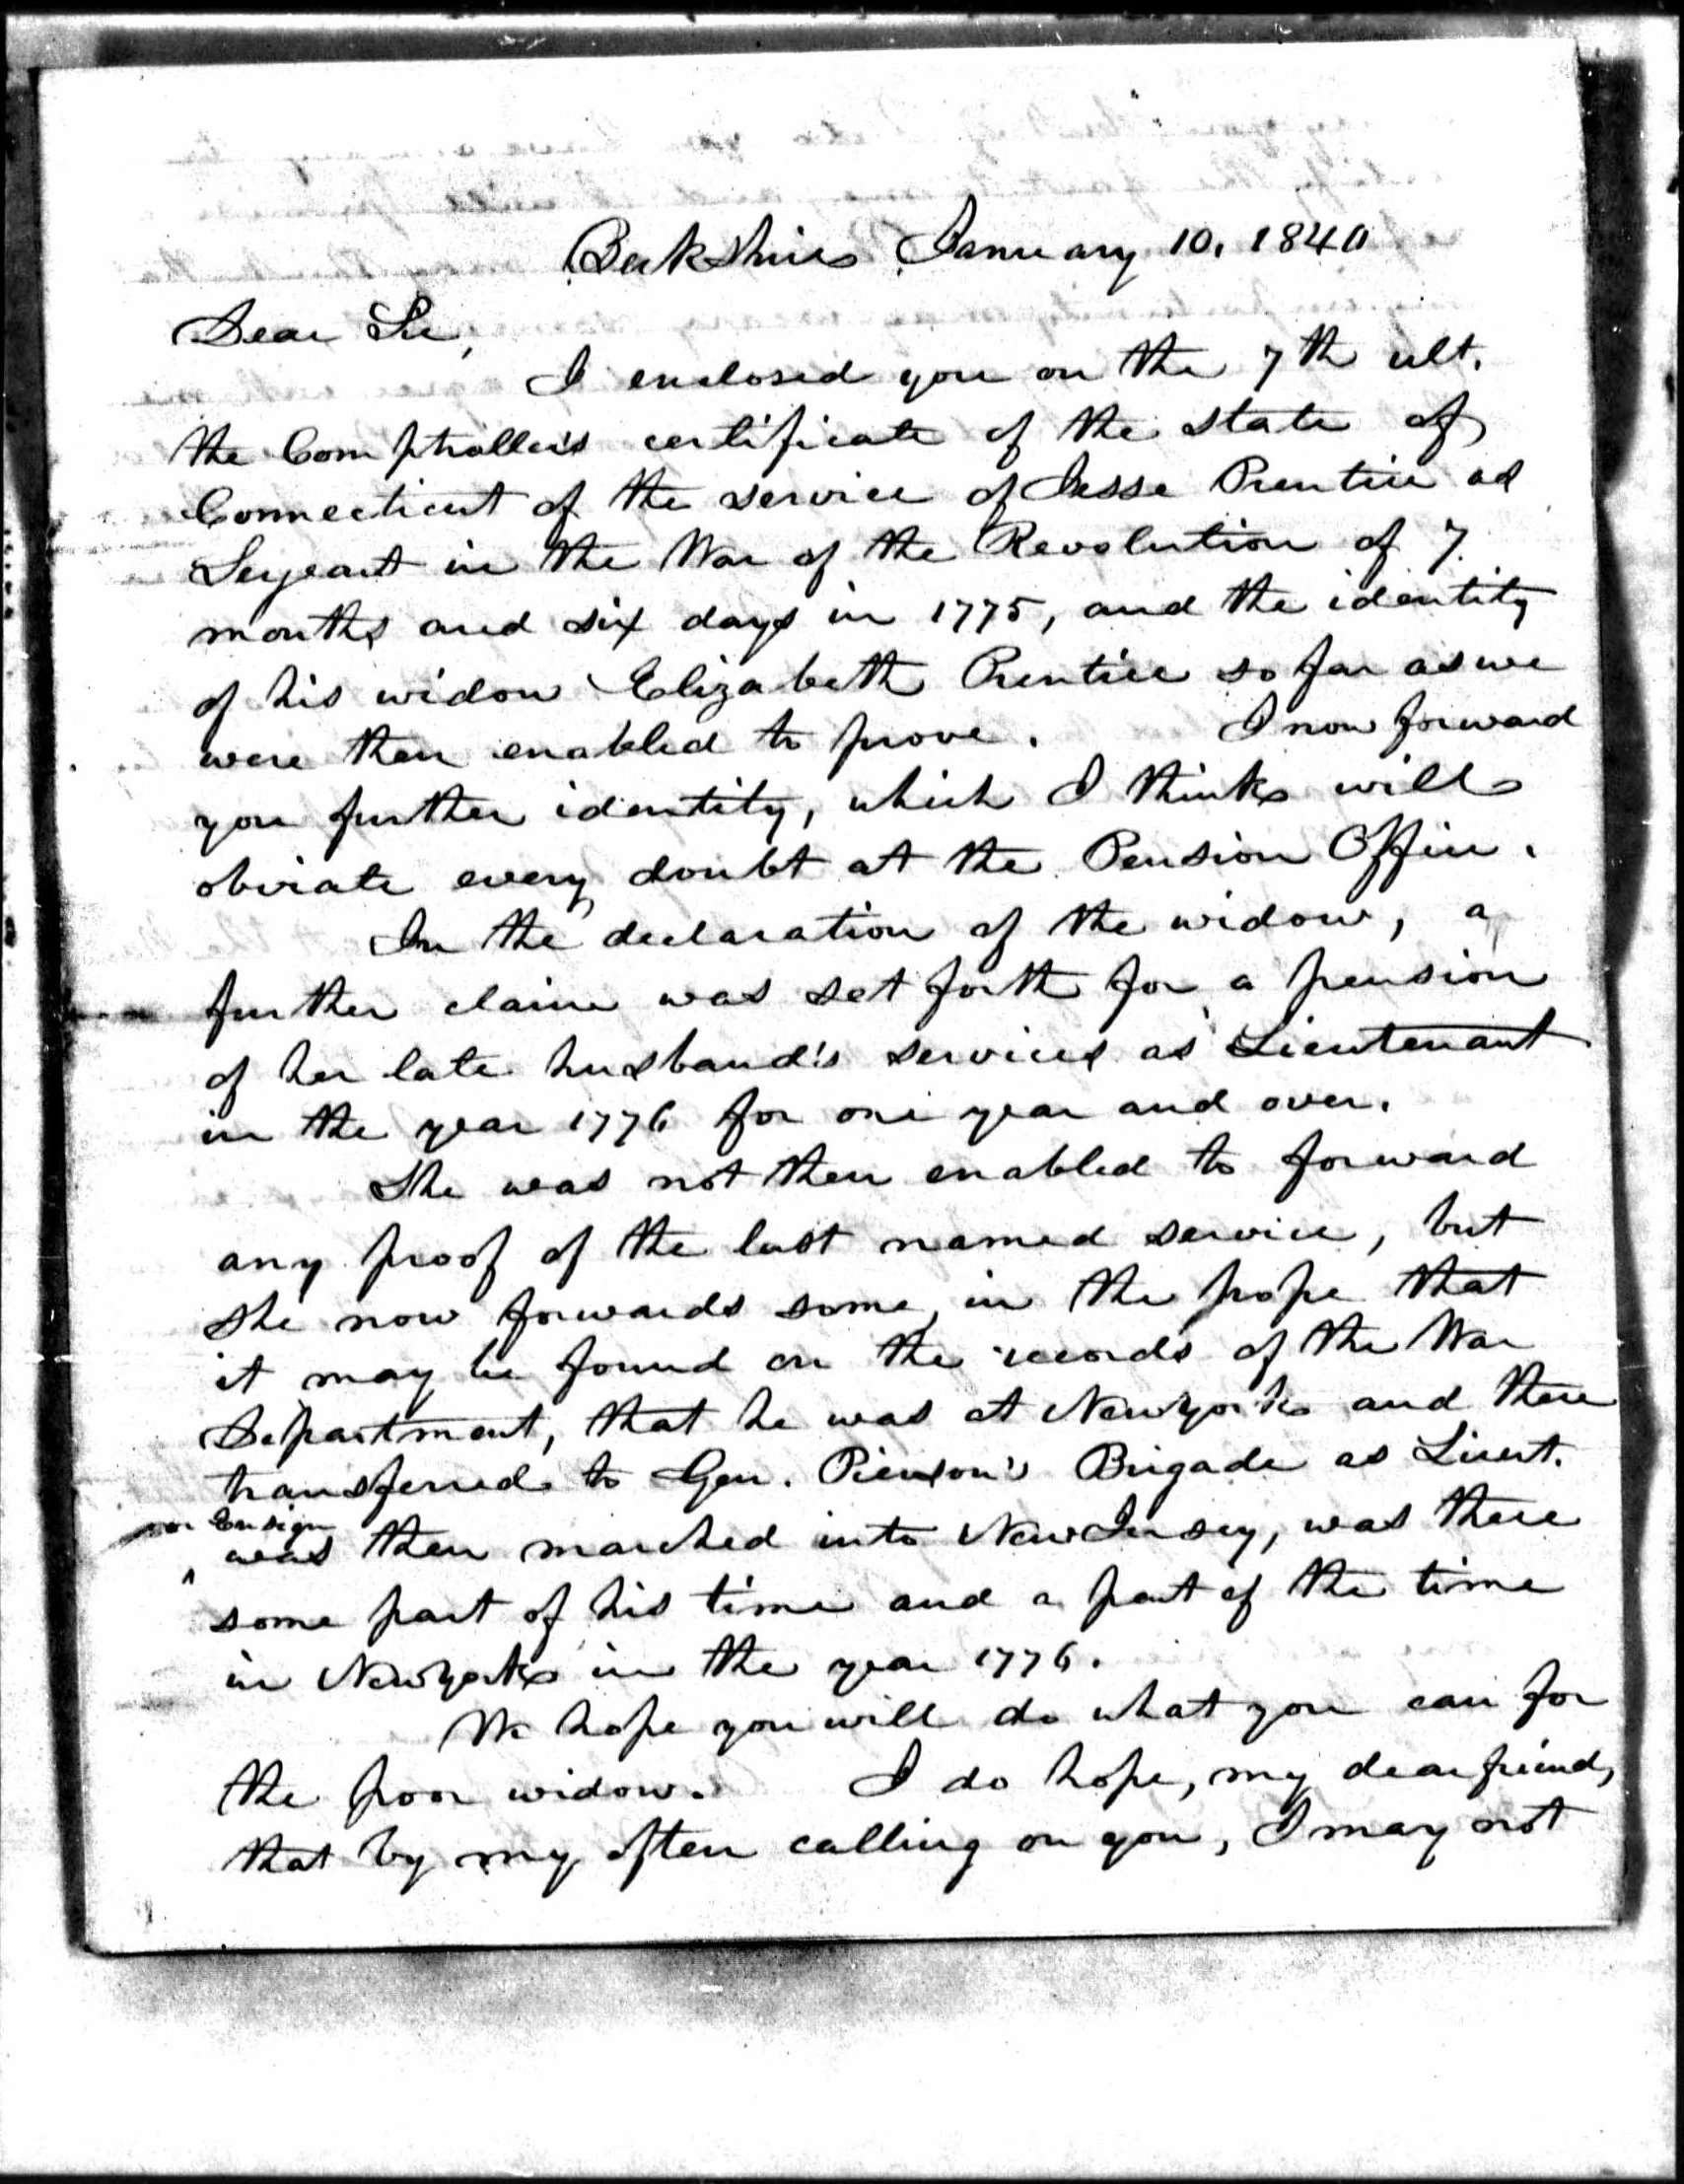 Berkshire January 10, 1840
Dear Sir,
I enclosed you on the 7th ult.
the Comptroller's certificate of the state of
Connecticut of the service of Jesse Prentice as
Serjeant in the War of the Revolution of 7
months and six days in 1775, and the identity
of his widow Elizabeth Prentice so far as we
were then enabled to prove. I now forward
you further identity, which I think will
obviate every doubt at the Pension Office.
In the declaration of the widow, a
further claim was set forth for a pension
of her late husband's services as Lieutenant
in the year 1776 for one year and over.
She was not then enabled to forward
any proof of the last named service, but
she now forwards some, in the hope that
it may be found on the records of the War
Department, that he was at New York and there
transferred to Gen. Pierson's Brigade as Lieut.
or Ensign
was then marched into New Jersey, was there
some part of his time and a part of the time
in New York in the year 1776.
We hope you will do what you can for
the poor widow. I do hope, my dear friend,
that by my often calling on you, I may not